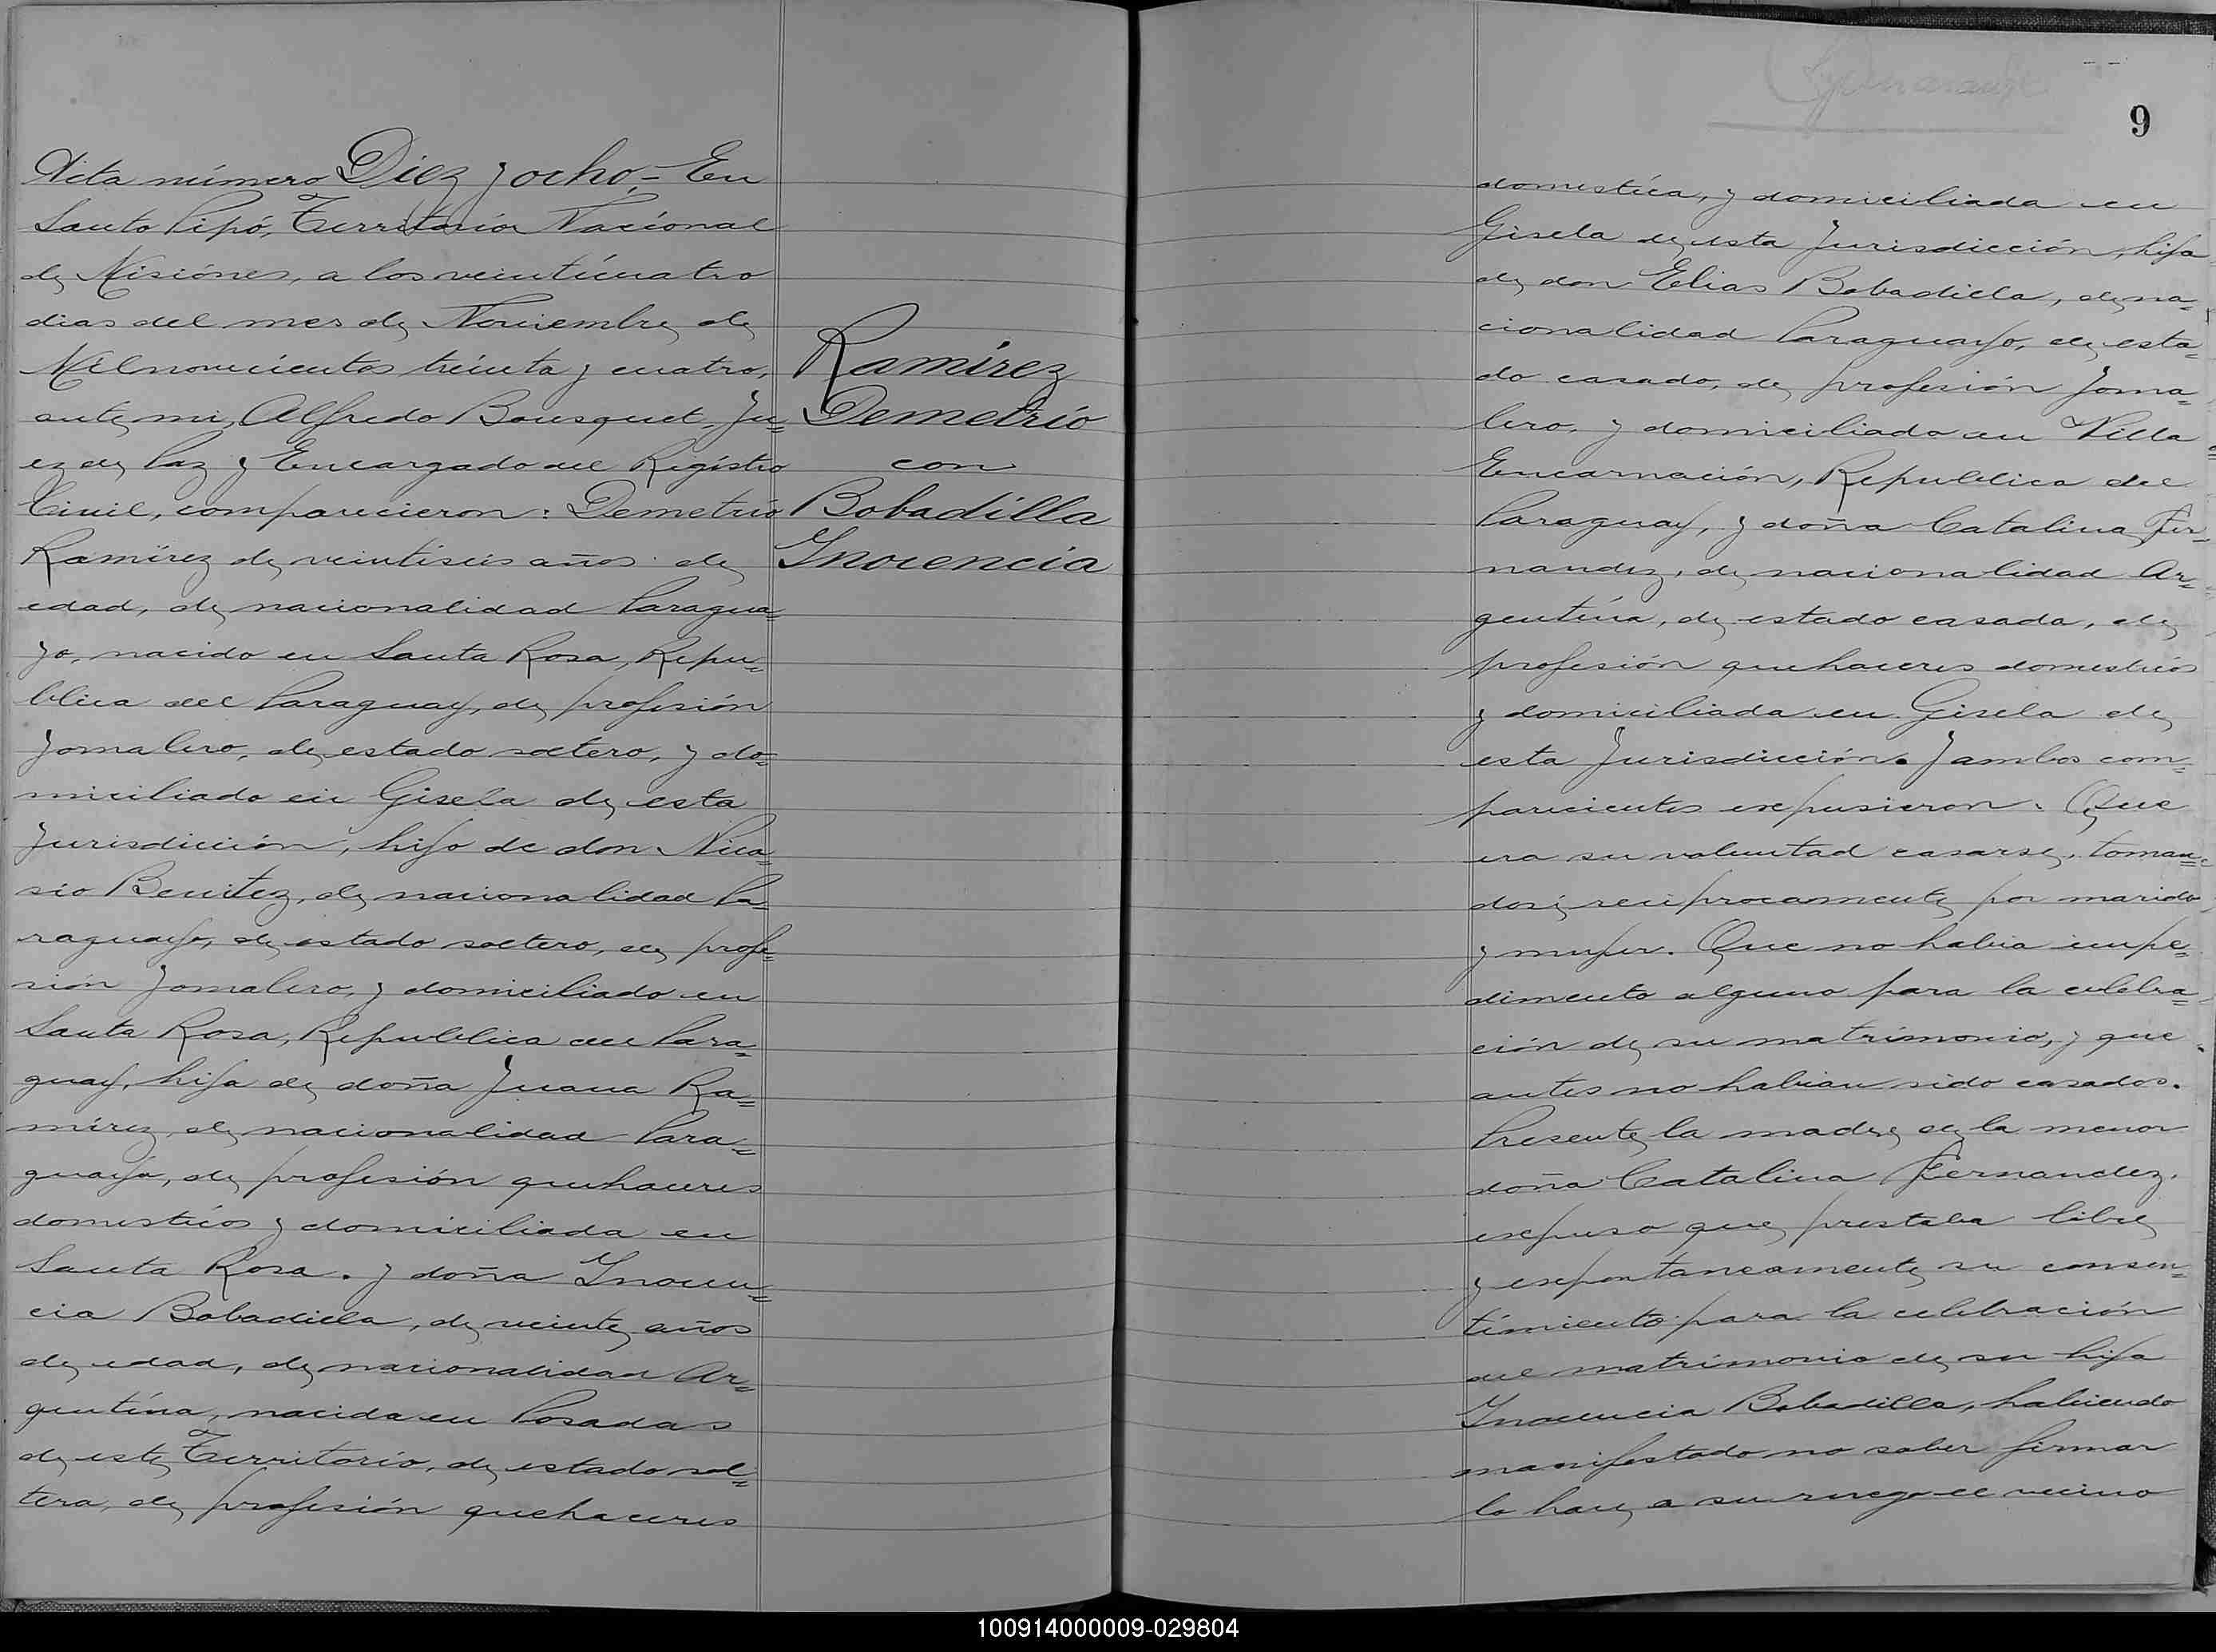 Acta número Diez y ocho,- En
Santo Pipó, Territorio Nacional
de Misiónes, a los veintícuatro
dias del mes de Noviembre de
Mil novecíentos tréinta y cuatro,
ante mi, Alfredo Bousquet, Ju=
ez de Paz y Encargado del Regístro
Civil, comparecieron: Demetrio
Ramírez de veintiseis años de
edad, de nacionalidad Paragua=
yo, nacido en Santa Rosa, Repu=
blica del Paraguay, de profesión
Jornalero, de estado soltero, y do=
miciliado en Gisela de esta
Jurisdicción, hijo de don Nica=
sio Benitez, de nacionalidad Pa=
raguayo, de estado soltero, de profe=
sión Jornalero, y domiciliado en
Santa Rosa, Republica del Para=
guay, hijo de doña Juana Ra=
mírez, de nacionalidad Para=
guaya, de profesión quehaceres
domestícos y domiciliada en
Santa Rosa. y doña Inocen=
cia Bobadilla, de veinte años
de edad, de nacionalidad Ar=
gentína, nacida en Posadas
de este Territorio, de estado sol=
tera, de profesión quehaceres
Ramírez
Demetrio
con
Bobadilla
Inocencia
9
domestíca, y domiciliada en
Gisela de esta Jurisdicción, hija
de don Elias Bobadilla, de na=
cionalidad Paraguayo, de esta=
do casado, de profesión Jorna=
lero, y domiciliado en Villa
Encarnación, Republica del
Paraguay, y doña Catalina Fer=
nandez, de nacionalidad Ar=
gentína, de estado casada, de
profesión quehaceres domestícos
y domiciliada en Gisela de
esta Jurisdicción. Y ambos com=
parecientes expusieron: Que
era su voluntad casarse, toman=
dose reciprocamente por marido
y mujer. Que no habia impe=
dimento alguno para la celebra=
ción de su matrimonio, y que
antes no habian sido casados.
Presente la madre de la menor
doña Catalina Fernandez,
expuso que prestaba libre
y expontaneamente su consen=
tímiento para la celebración
del matrimonio de su hija
Inocencia Bobadilla, habiendo
manifestado no saber firmar
lo hace a su ruego el vecino
100914000009-029804